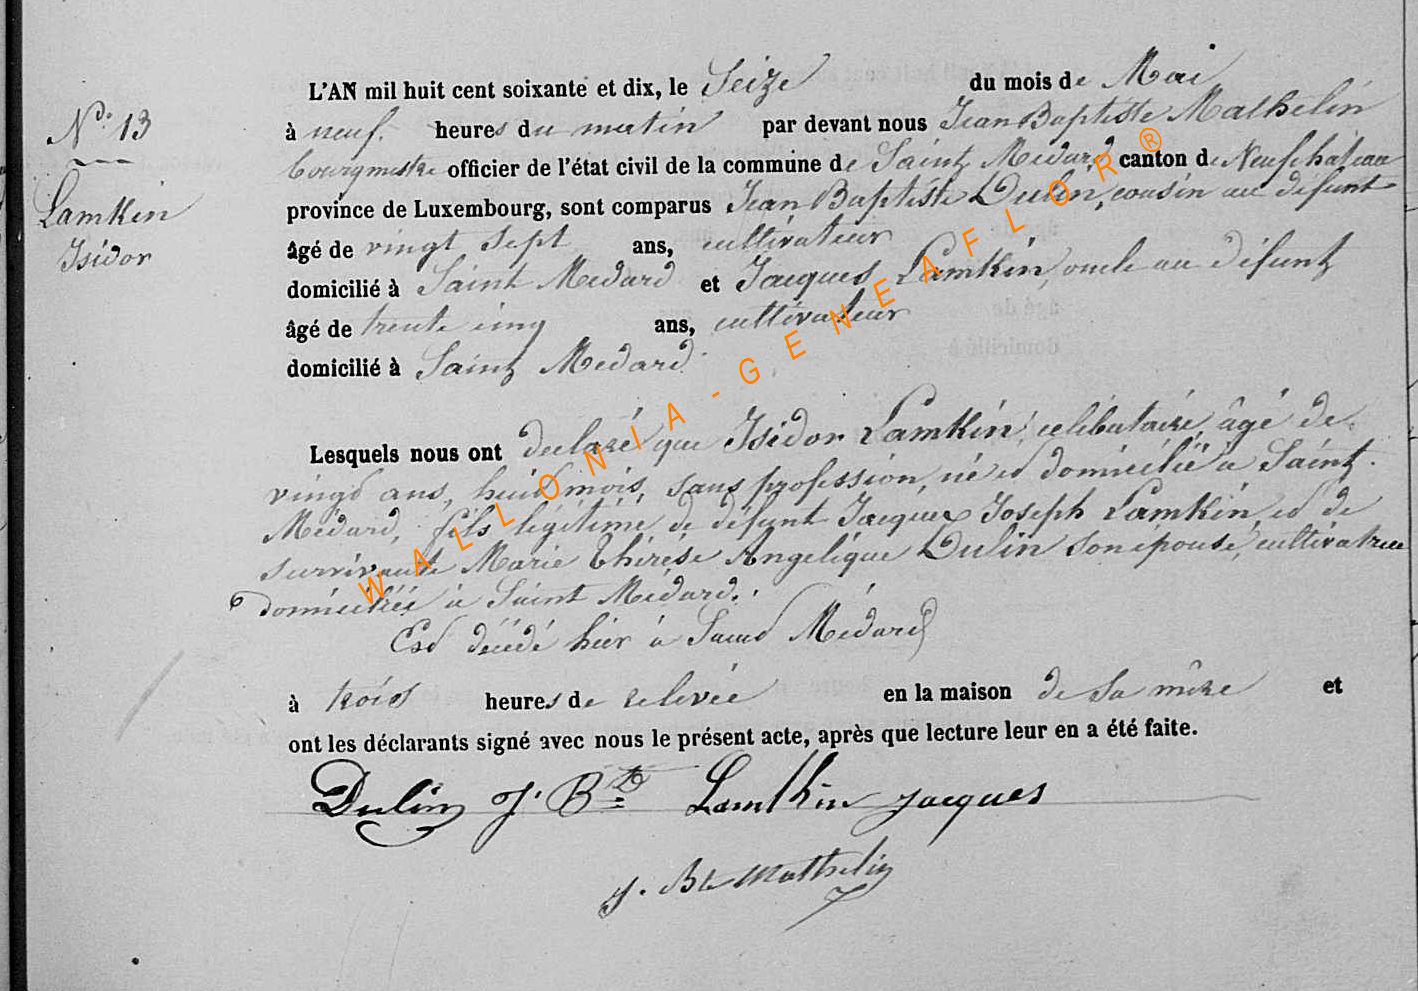 N° 13
Lamkin
Isidor
L'AN mil huit cent soixante et dix, le Seize du mois de Mai
à neuf heures du matin par devant nous Jean Baptiste Mathelin
bourgmestre officier de l'état civil de la commune de Saint Médard canton de Neufchateau
province de Luxembourg, sont comparus Jean Baptiste Dulin, cousin au défunt
âgé de vingt sept ans, cultivateur
domicilié à Saint Medard et Jacques Lamkin, oncle au défunt,
âgé de trente cinq ans, cultivateur
domicilié à Saint Medard.
Lesquels nous ont declaré que Isidor Lamkin, célibataire, âgé de
vingt ans, huit mois, sans profession, né et domicilié à Saint
Médard, fils légitime de défunt Jacques Joseph Lamkin et de
survivante Marie Thérèse Angelique Dulin son épouse, cultivatrice
domiciliée à Saint Médard.
Est décédé hier à Saint Médard
à trois heures de relevée en la maison de sa mère et
ont les déclarants signé avec nous le présent acte, après que lecture leur en a été faite.
Dulin J. Bte Lamkin Jacques
J. Bte Mathelin
WALLONIA-GENEAFLOR®